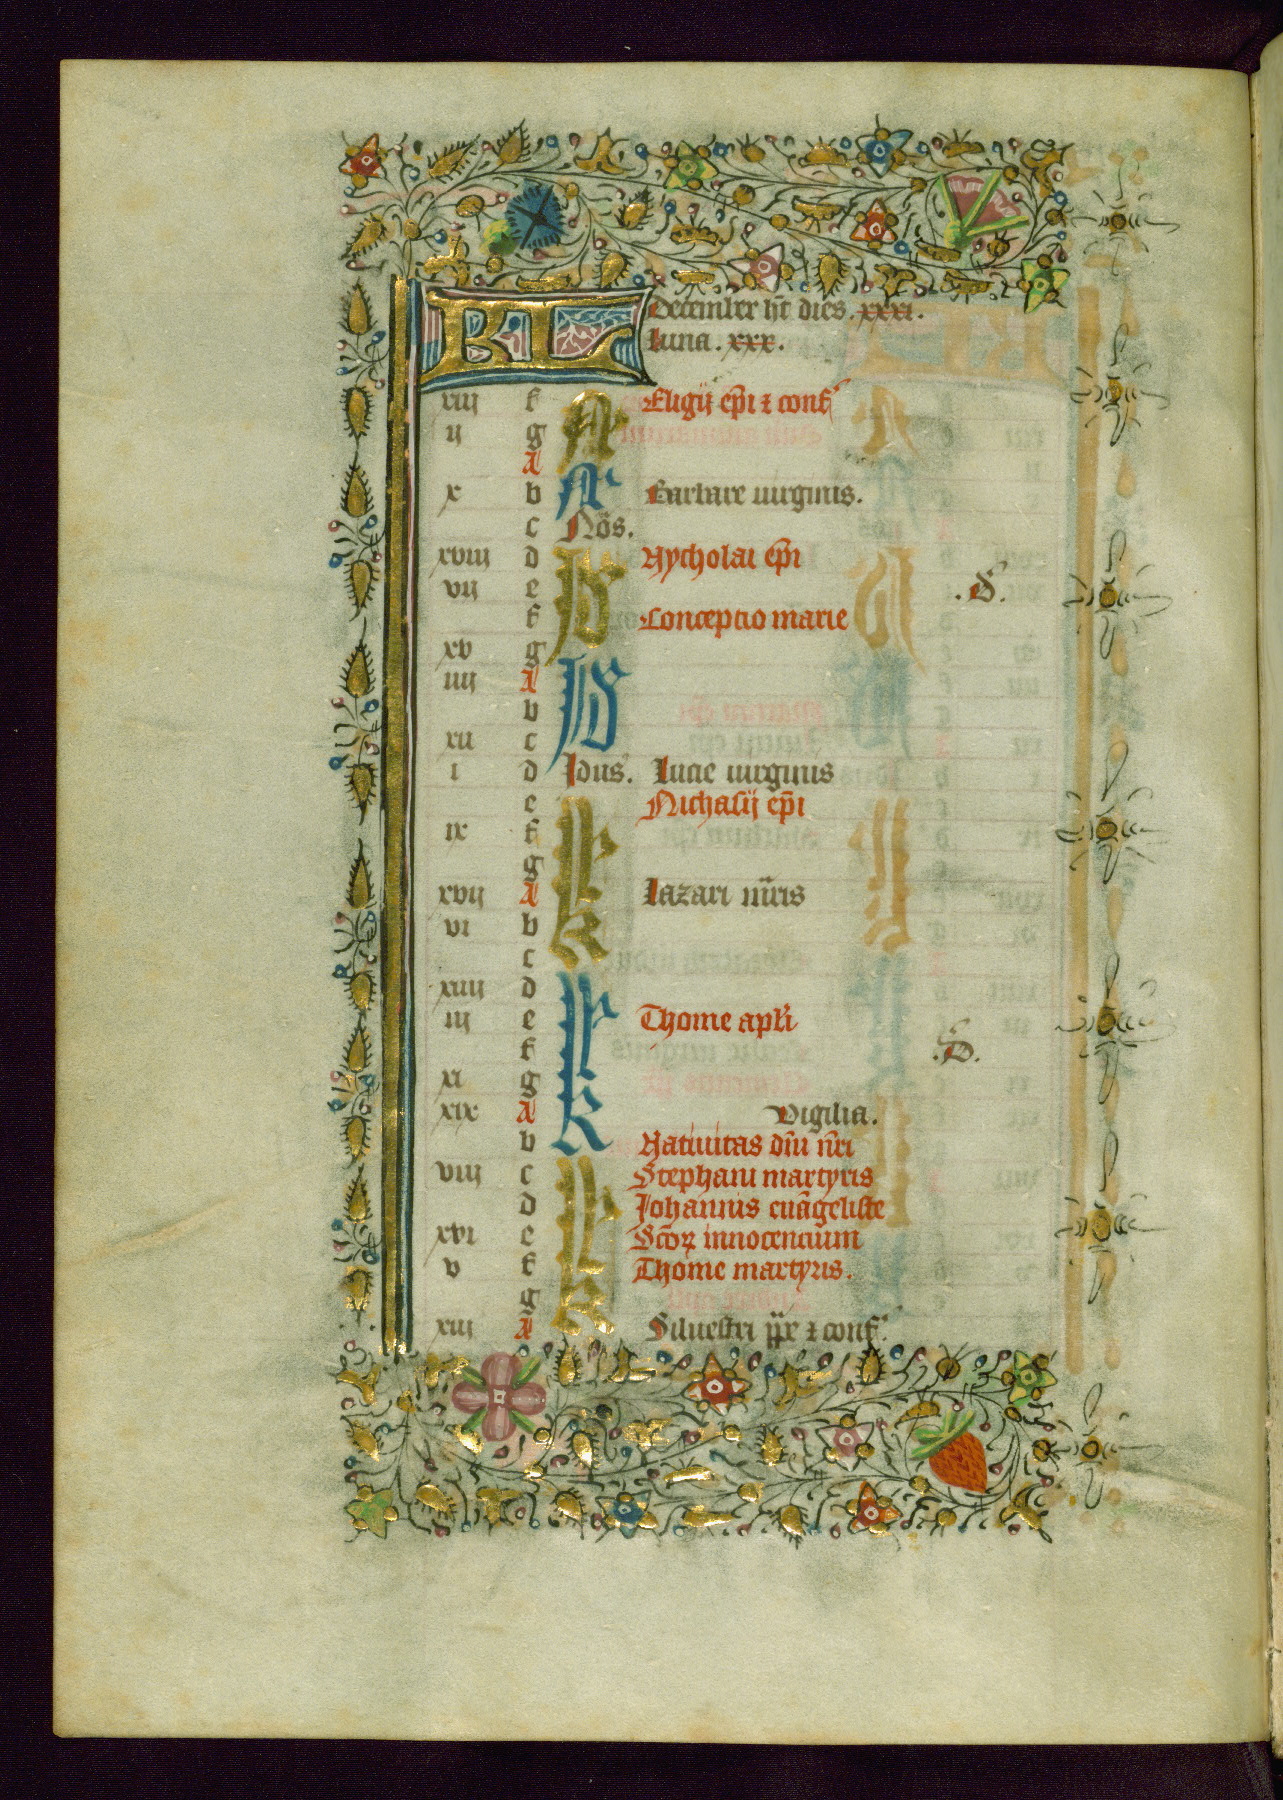 KL December ht dies .xxxi.
Luna .xxx.
xiij f N Eligij epi ⁊ conf
ij g
A
x b N Barbare uirginis.
c Nos.
xviij d Nycholai epi
vij e .S.
f Conceptio marie
xv g
iiij A
b
xij c
i d Idus. Lucie uirginis
e Nichasij epi
ix f K
g
xvij A Lazari mris
vi b
c
xiiij d K
iij e Thome apli
f .S.
xi g
xix A Vigilia.
b Natiuitas dni nri
viij c K Stephani martyris
d Johannis euãgeliste
xvi e Scoꝝ innocencium
v f Thome martyris.
g
xiij A Siluestri ppe ⁊ conf.